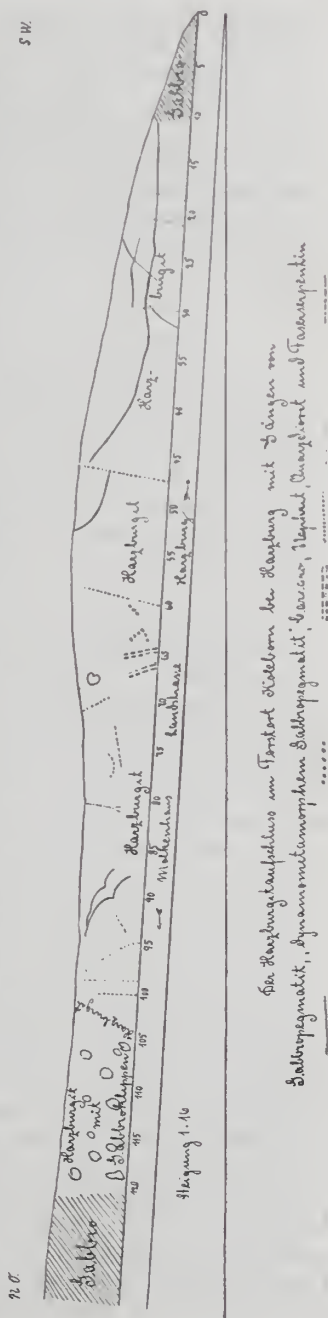 N.O.
S.W.
Gabbro
Harzburgit
mit
Gabbroklippen
Harzburgit
Harzburgit
Harz-
burgit
Gabbro
120 115 110 105 100 95 90 85 80 75 70 65 60 55 50 45 40 35 30 25 20 15 10 5 0
Molkenhaus
Landstrasse
Harzburg
Neigung 1:16
Der Harzburgitaufschluss im Forstort Koleborn bei Harzburg mit Gängen von
Gabbropegmatit, „dynamometamorphem Gabbropegmatit“, Nephrit, Quarzdiorit und Faserserpentin